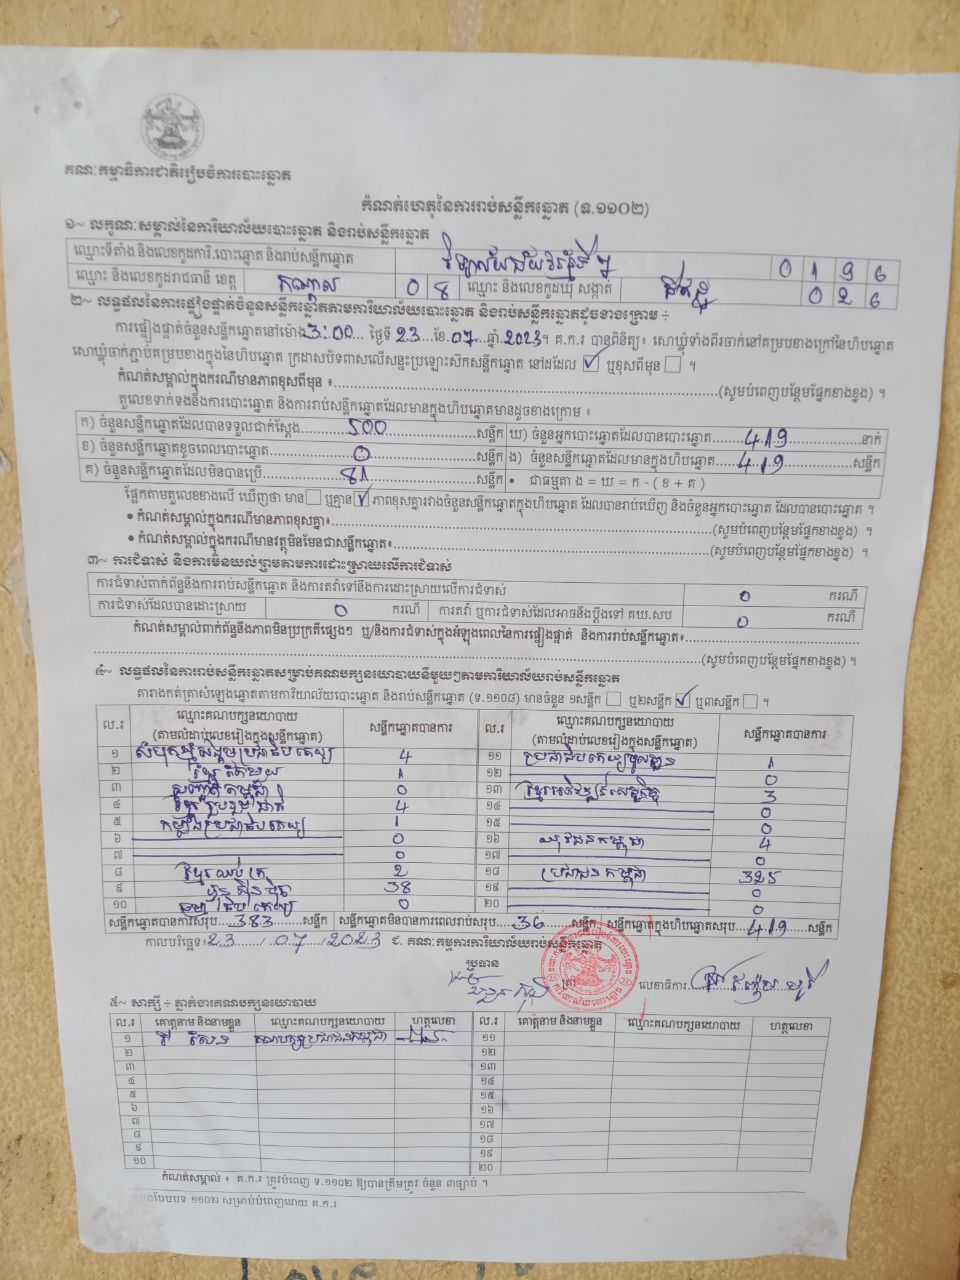 គណៈកម្មាធិការជាតិរៀបចំការបោះឆ្នោត
កំណត់ហេតុនៃការរាប់សន្លឹកឆ្នោត (ទ.១១០២)
១~ លក្ខណៈសម្គាល់នៃការិយាល័យបោះឆ្នោត និងរាប់សន្លឹកឆ្នោត
ឈ្មោះទីតាំង និងលេខកូដការិ.បោះឆ្នោត និងរាប់សន្លឹកឆ្នោត 0 1 9 6
ឈ្មោះ និងលេខកូដរាជធានី ខេត្ត កណ្តាល 0 8 ឈ្មោះ និងលេខកូដឃុំ សង្កាត់ 0 2 6
២~ លទ្ធផលនៃការផ្ទៀងផ្ទាត់ចំនួនសន្លឹកឆ្នោតតាមការិយាល័យបោះឆ្នោត និងរាប់សន្លឹកឆ្នោតដូចខាងក្រោម ÷
ការផ្ទៀងផ្ទាត់ចំនួនសន្លឹកឆ្នោតនៅម៉ោង 3:00 ថ្ងៃទី 23 ខែ 07 ឆ្នាំ 2023។ គ.ក.រ បានពិនិត្យ៖ សោឃ្លុំទាំងពីរចាក់នៅគម្របខាងក្រៅនៃហិបឆ្នោត
សោឃ្លុំចាក់ភ្ជាប់គម្របខាងក្នុងនៃហិបឆ្នោត ក្រដាសបិទពាសលើសន្ទះប្រឡោះស៊កសន្លឹកឆ្នោត នៅដដែល ✓ ឬខុសពីមុន ។
កំណត់សម្គាល់ក្នុងករណីមានភាពខុសពីមុន ៖ (សូមបំពេញបន្ថែមផ្នែកខាងខ្នង) ។
តួលេខទាក់ទងនឹងការបោះឆ្នោត និងការរាប់សន្លឹកឆ្នោតដែលមានក្នុងហិបឆ្នោតមានដូចខាងក្រោម ៖
ក) ចំនួនសន្លឹកឆ្នោតដែលបានទទួលជាក់ស្តែង 500 សន្លឹក ឃ) ចំនួនអ្នកបោះឆ្នោតដែលបានបោះឆ្នោត 419 នាក់
ខ) ចំនួនសន្លឹកឆ្នោតខូចពេលបោះឆ្នោត 0 សន្លឹក ង) ចំនួនសន្លឹកឆ្នោតដែលមានក្នុងហិបឆ្នោត 419 សន្លឹក
គ) ចំនួនសន្លឹកឆ្នោតដែលមិនបានប្រើ 81 សន្លឹក • ជាធម្មតា ង = ឃ = ក - ( ខ + គ )
ផ្អែកតាមតួលេខខាងលើ ឃើញថា មាន ឬគ្មាន ✓ ភាពខុសគ្នារវាងចំនួនសន្លឹកឆ្នោតក្នុងហិបឆ្នោត ដែលបានរាប់ឃើញ និងចំនួនអ្នកបោះឆ្នោត ដែលបានបោះឆ្នោត ។
• កំណត់សម្គាល់ក្នុងករណីមានភាពខុសគ្នា៖ (សូមបំពេញបន្ថែមផ្នែកខាងខ្នង) ។
• កំណត់សម្គាល់ក្នុងករណីមានវត្ថុមិនមែនជាសន្លឹកឆ្នោត៖ (សូមបំពេញបន្ថែមផ្នែកខាងខ្នង) ។
៣~ ការជំទាស់ និងការមិនយល់ព្រមតាមការដោះស្រាយលើការជំទាស់
ការជំទាស់ពាក់ព័ន្ធនឹងការរាប់សន្លឹកឆ្នោត និងការតវ៉ាទៅនឹងការដោះស្រាយលើការជំទាស់ 0 ករណី
ការជំទាស់ដែលបានដោះស្រាយ 0 ករណី ការតវ៉ា ឬការជំទាស់ដែលអាចនឹងប្តឹងទៅ គឃ.សប 0 ករណី
កំណត់សម្គាល់ពាក់ព័ន្ធនឹងភាពមិនប្រក្រតីផ្សេងៗ ឬ/និងការជំទាស់ក្នុងអំឡុងពេលនៃការផ្ទៀងផ្ទាត់ និងការរាប់សន្លឹកឆ្នោត៖
(សូមបំពេញបន្ថែមផ្នែកខាងខ្នង) ។
៤~ លទ្ធផលនៃការរាប់សន្លឹកឆ្នោតសម្រាប់គណបក្សនយោបាយនីមួយៗតាមការិយាល័យបោះឆ្នោត និងរាប់សន្លឹកឆ្នោត
តារាងកត់ត្រាសំឡេងឆ្នោតតាមការិយាល័យបោះឆ្នោត និងរាប់សន្លឹកឆ្នោត (ទ.១១០៨) មានចំនួន ១សន្លឹក ឬ២សន្លឹក ✓ ឬ៣សន្លឹក ។
ល.រ ឈ្មោះគណបក្សនយោបាយ សន្លឹកឆ្នោតបានការ ល.រ ឈ្មោះគណបក្សនយោបាយ សន្លឹកឆ្នោតបានការ
(តាមលំដាប់លេខរៀងក្នុងសន្លឹកឆ្នោត) (តាមលំដាប់លេខរៀងក្នុងសន្លឹកឆ្នោត)
១ សំបុកឃ្មុំសង្គមប្រជាធិបតេយ្យ 4 ១១ ប្រជាធិបតេយ្យមូលដ្ឋាន 1
២ 1 ១២ 0
៣ សញ្ជាតិកម្ពុជា 0 ១៣ ខ្មែរអភិវឌ្ឍន៍សេដ្ឋកិច្ច 3
៤ ខ្មែររួបរួមជាតិ 4 ១៤ 0
៥ កម្លាំងប្រជាធិបតេយ្យ 1 ១៥ 0
៦ 0 ១៦ យុវជនកម្ពុជា 4
៧ 0 ១៧ 0
៨ ខ្មែរឈប់ក្រ 2 ១៨ ប្រជាជនកម្ពុជា 325
៩ ហ៊្វុនស៊ិនប៉ិច 38 ១៩ 0
១០ ធម្មាធិបតេយ្យ 0 ២០ 0
សន្លឹកឆ្នោតបានការសរុប 383 សន្លឹក សន្លឹកឆ្នោតមិនបានការពេលរាប់សរុប 36 សន្លឹក សន្លឹកឆ្នោតក្នុងហិបឆ្នោតសរុប 419 សន្លឹក
កាលបរិច្ឆេទ៖ 23 / 07 / 2023 ជ. គណៈកម្មការការិយាល័យរាប់សន្លឹកឆ្នោត
ប្រធាន
លេខាធិការ
៥~ សាក្សី ÷ ភ្នាក់ងារគណបក្សនយោបាយ
ល.រ គោត្តនាម និងនាមខ្លួន ឈ្មោះគណបក្សនយោបាយ ហត្ថលេខា ល.រ គោត្តនាម និងនាមខ្លួន ឈ្មោះគណបក្សនយោបាយ ហត្ថលេខា
១ គណបក្សប្រជាជនកម្ពុជា ១១
២ ១២
៣ ១៣
៤ ១៤
៥ ១៥
៦ ១៦
៧ ១៧
៨ ១៨
៩ ១៩
១០ ២០
កំណត់សម្គាល់ ៖ គ.ក.រ ត្រូវបំពេញ ទ.១១០២ ឱ្យបានត្រឹមត្រូវ ចំនួន ៣ច្បាប់ ។
ទម្រង់បែបបទ ១១០២ សម្រាប់បំពេញដោយ គ.ក.រ